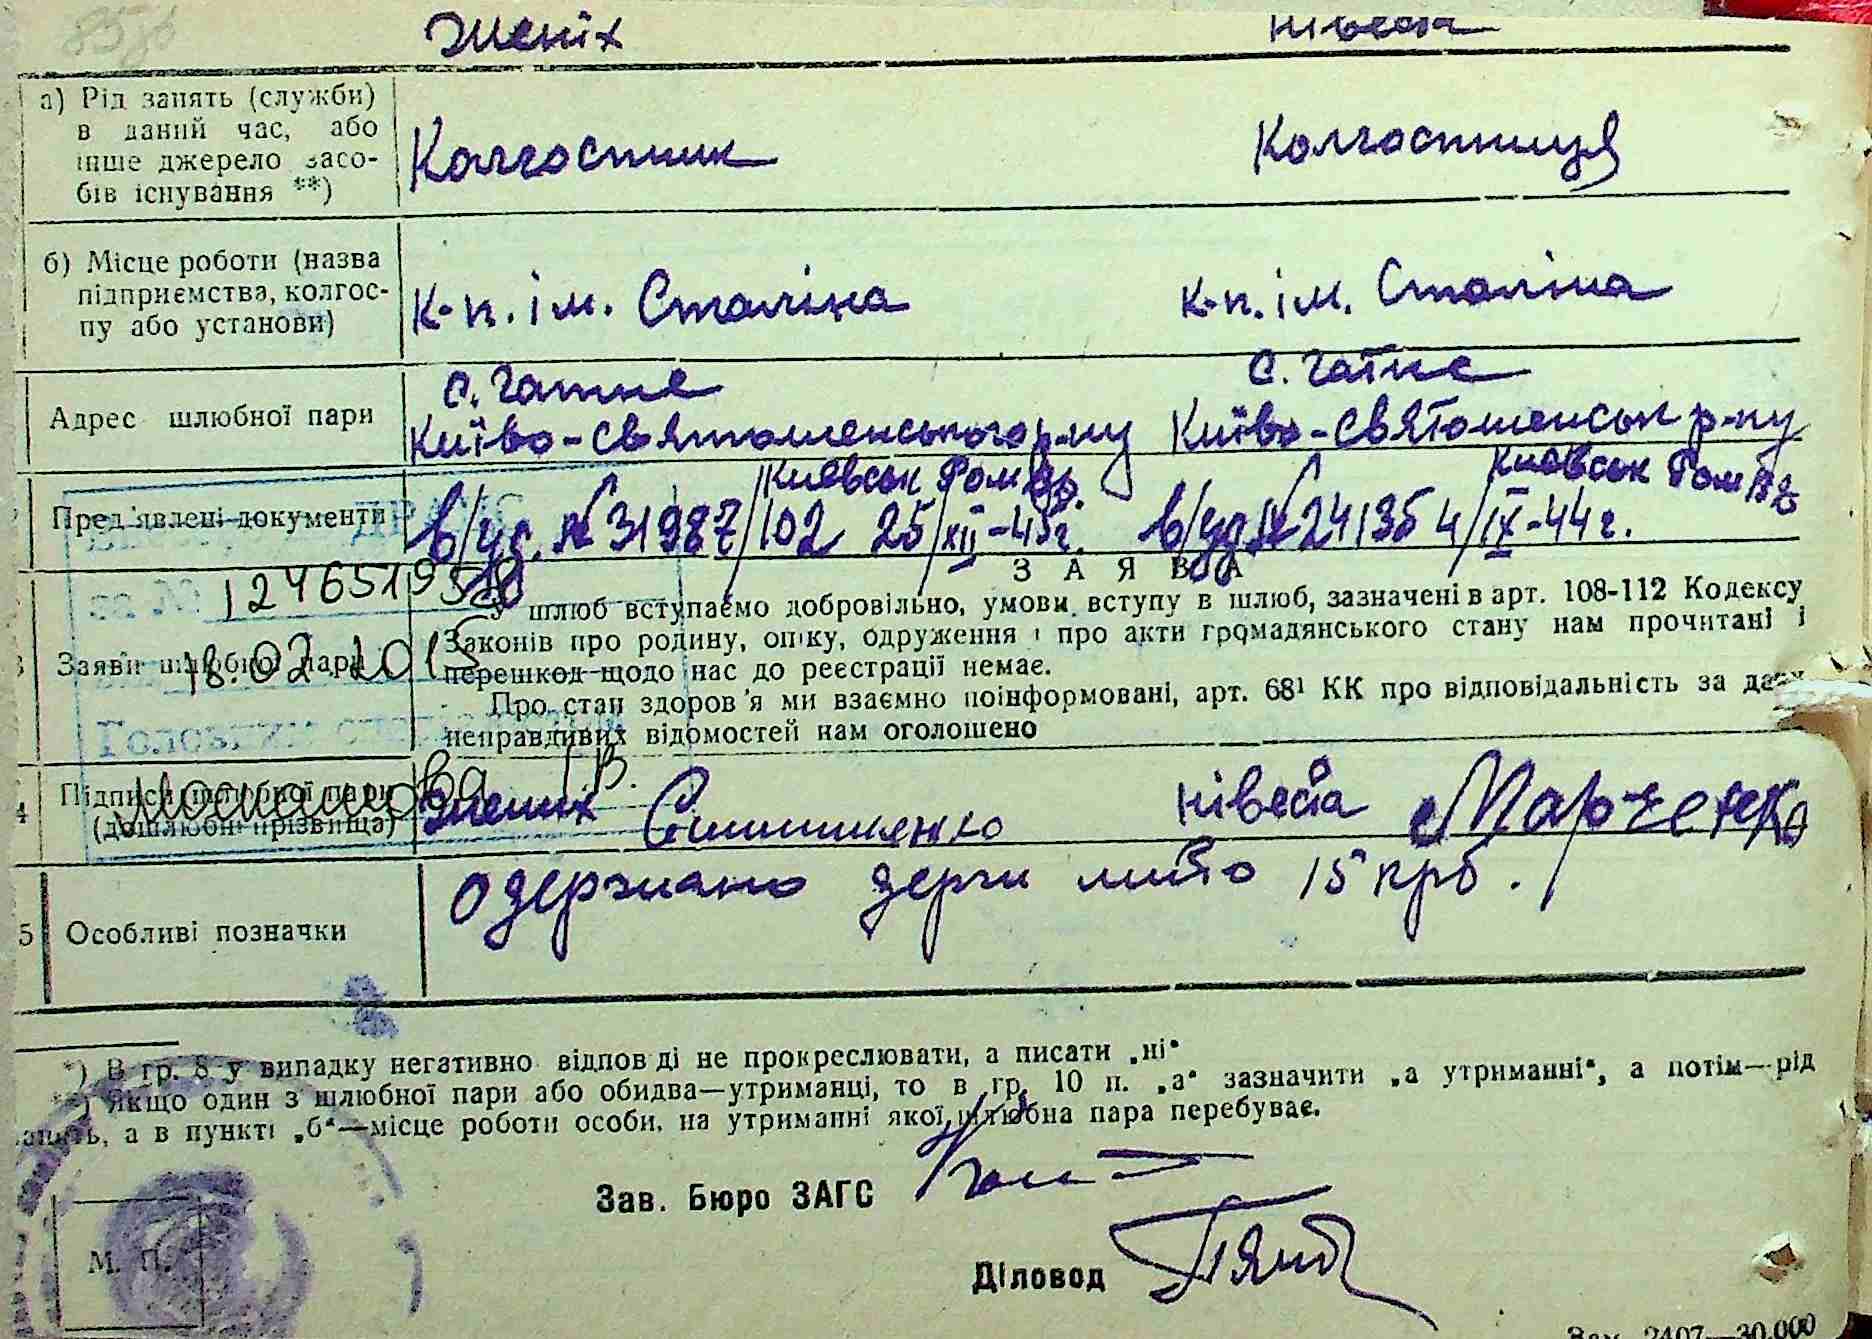 Жених Нівеста
а) Рід занять (служби)
в даний час, або
інше джерело засо-
бів існування **)
Колгоспник Колгоспниця
б) Місце роботи (назва
підприємства, колгос-
пу або установи)
к-п. ім. Сталіна к-п. ім. Сталіна
с. Гатне с. Гатне
Адрес шлюбної пари
Київо-святошенського р-ну Київо-святошенськ р-ну
Київськ Київськ
Пред'явлені документи
в/уд. № 31987/102 25/XII-45г. в/уд № 241354/IX-44г.
ДРАЦС
за № 1246519538
ЗАЯВА
У шлюб вступаємо добровільно, умови вступу в шлюб, зазначені в арт. 108-112 Кодексу
Законів про родину, опіку, одруження і про акти громадянського стану нам прочитані і
Заяви шлюбної пари
18.02.2015
перешкод щодо нас до реєстрації немає.
Про стан здоров'я ми взаємно поінформовані, арт. 68¹ КК про відповідальність за дачу
неправдивих відомостей нам оголошено
Підписи шлюбної пари
(дошлюбні прізвища)
жених нівеста Марченко
5 Особливі позначки
Одержано держ мито 15 крб.
*) В гр. 8 у випадку негативно відпов ді не прокреслювати, а писати „ні“
**) Якщо один з шлюбної пари або обидва—утриманці, то в гр. 10 п. „а“ зазначити „а утриманні“, а потім—рід
занять, а в пункті „б“—місце роботи особи, на утриманні якої шлюбна пара перебуває.
Зав. Бюро ЗАГС
М. П.
Діловод
Зам. 2407—30.000